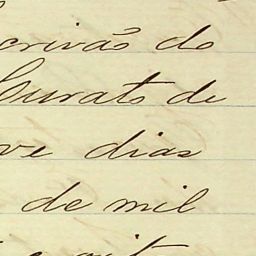 crivão do
Curato de
ve dias
de mil
e oit